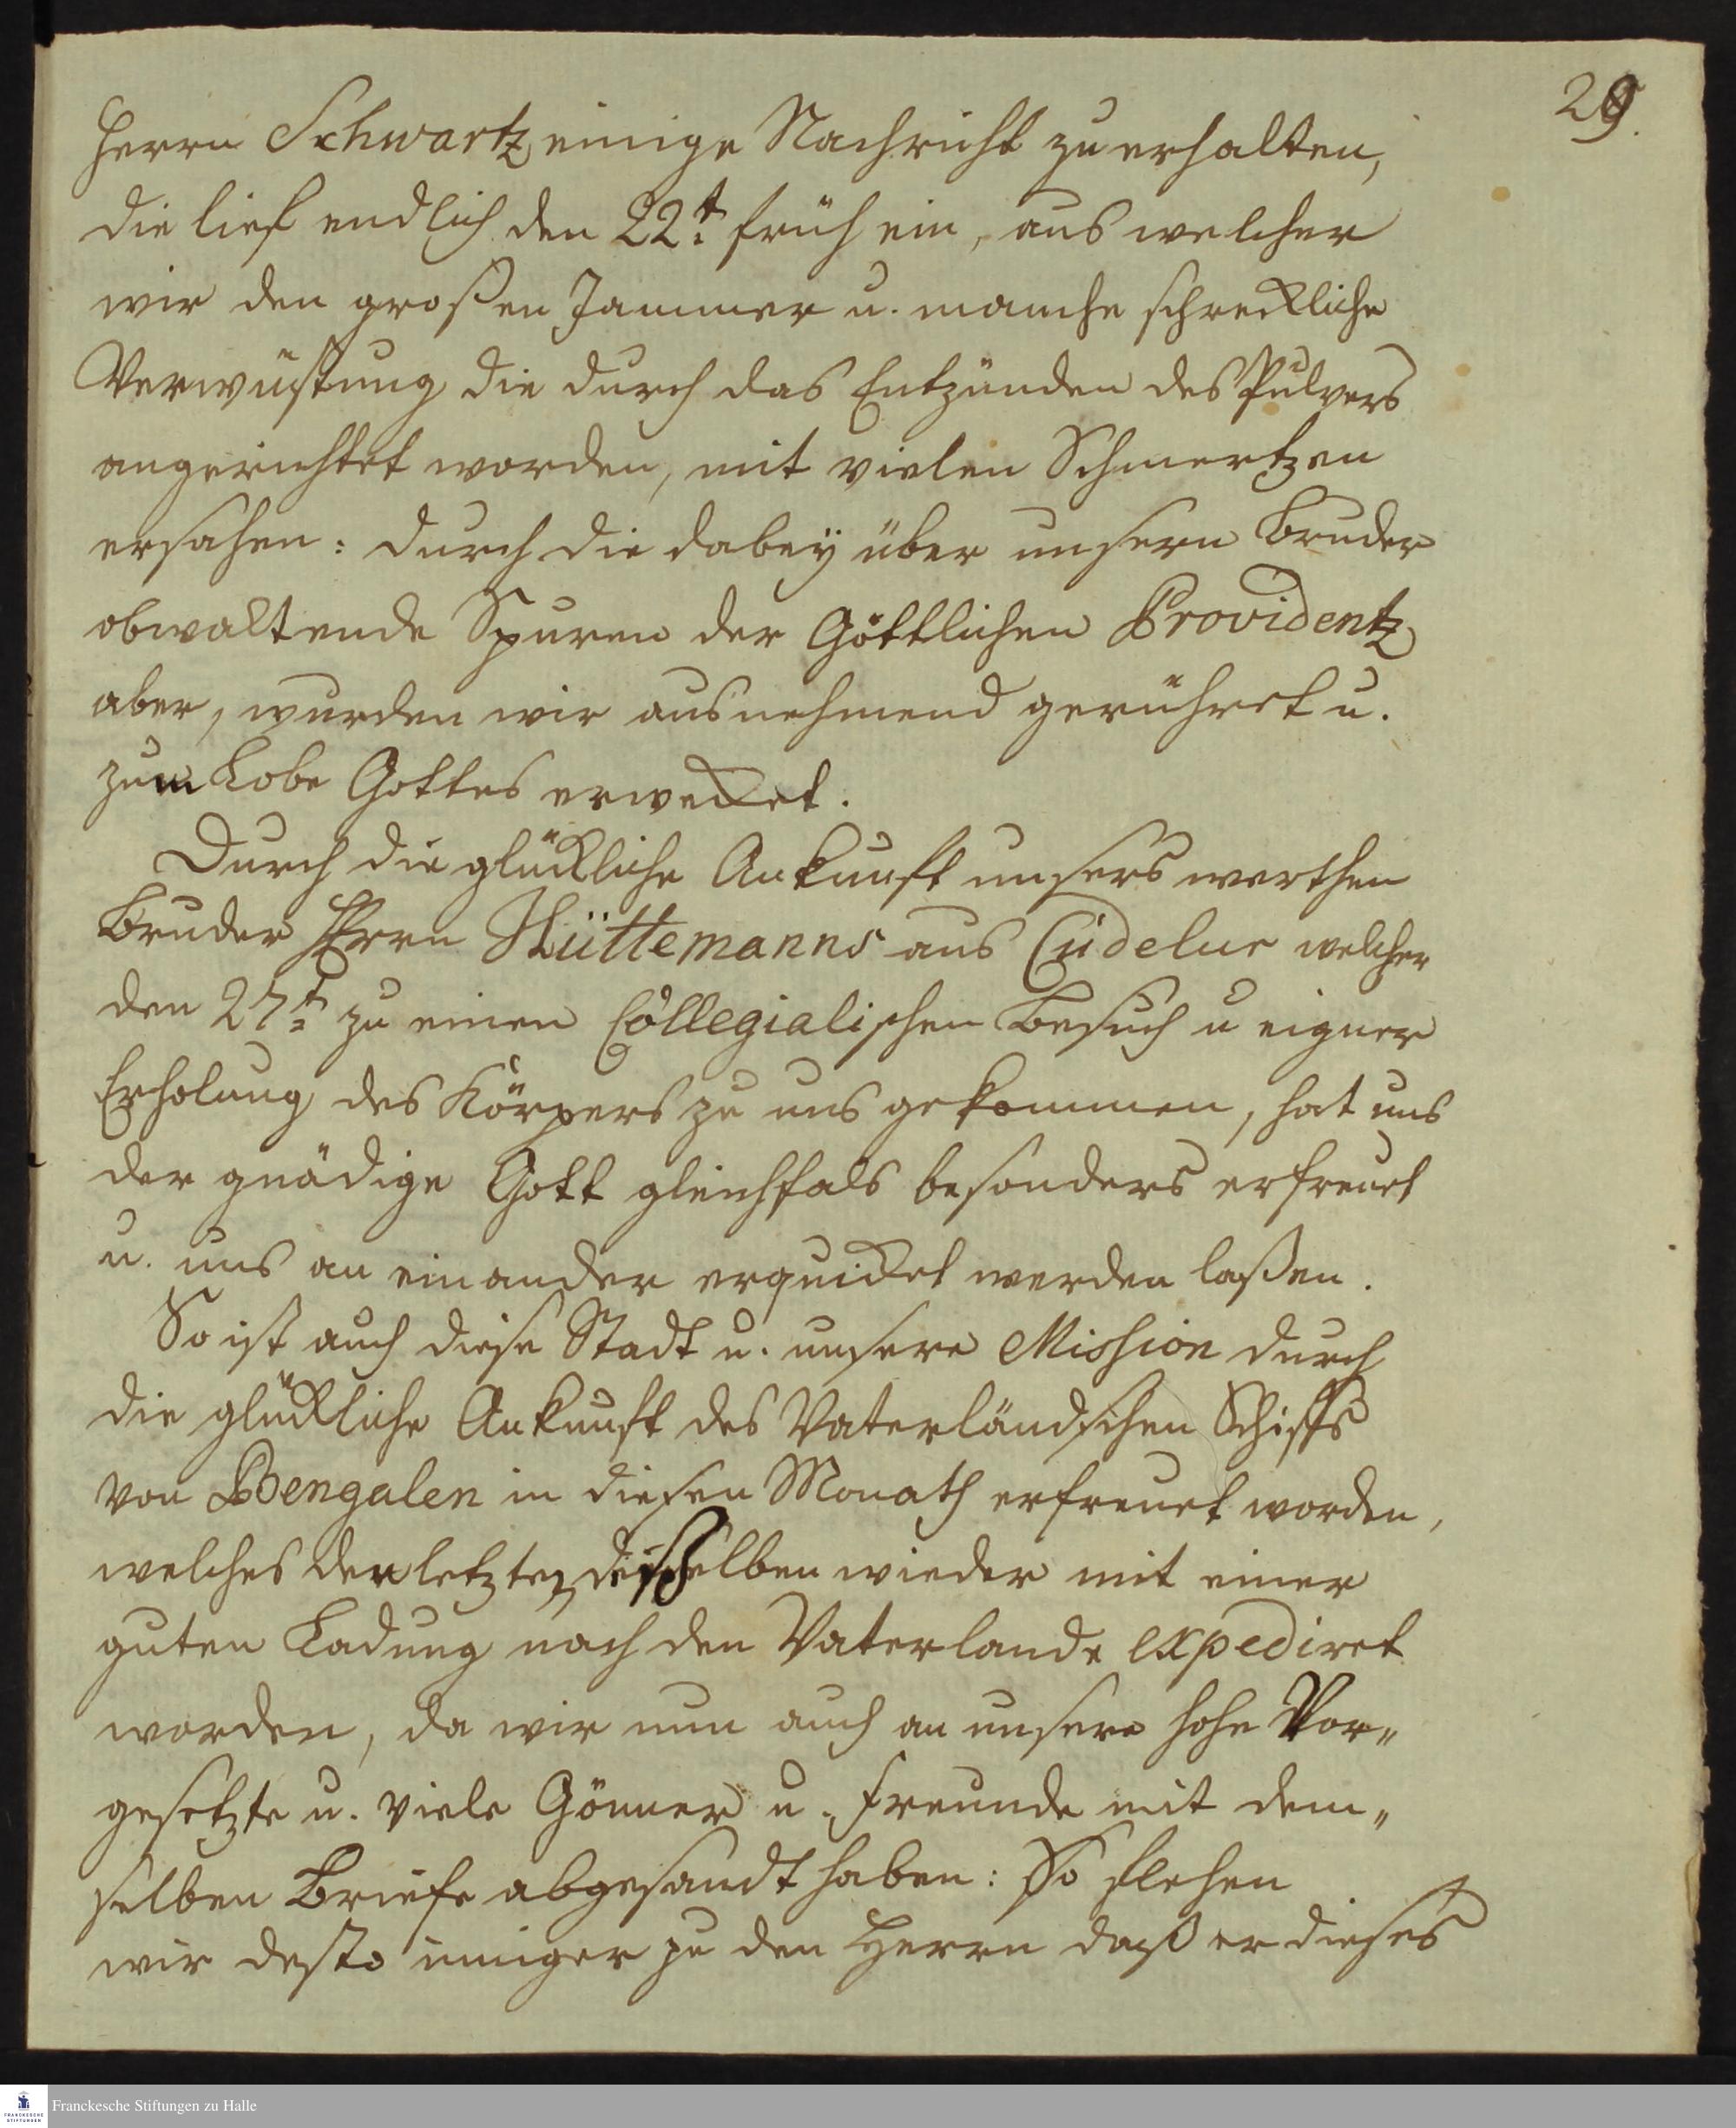 29.
Herrn Schwartz, einige Nachricht zu erhalten,
die lief endlich den 22t. früh ein, aus welcher
wir den großen Jammer u. manche schreckliche
Verwüstung die durch das Entzünden des Pulvers
angerichtet worden, mit vielen Schmertzen
ersahen: durch die dabeÿ über unsern Bruder
obwaltende Spuren der Göttlichen Providentz
aber, wurden wir ausnehmend gerühret u.
zum Lobe Gottes erwecket.
Durch die glückliche Ankunft unsers werthen
Bruder Herrn Hüttemanns aus Cudelur welcher
den 27t. zu einen Collegialischen Besuch u eigner
Erholung des Körpers zu uns gekommen, hat uns
der gnädige Gott gleichfals besonders erfreuet
u. uns an einander erquicket werden laßen.
So ist auch diese Stadt u. unsere Mission durch
die glückliche Ankunft des Vaterländschen Schiffs
von Bengalen in diesen Monath erfreuet worden,
welches den letzten deßelben wieder mit einer
guten Ladung nach den Vaterlande expediret
worden, da wir nun auch an unsere hohe Vor„
gesetzte u. viele Gönner u. Freunde mit dem„
selben Briefe abgesandt haben: So flehen
wir desto inniger zu den Herrn daß er dieses
Franckesche Stiftungen zu Halle
FRANCKESCHE
STIFTUNGEN